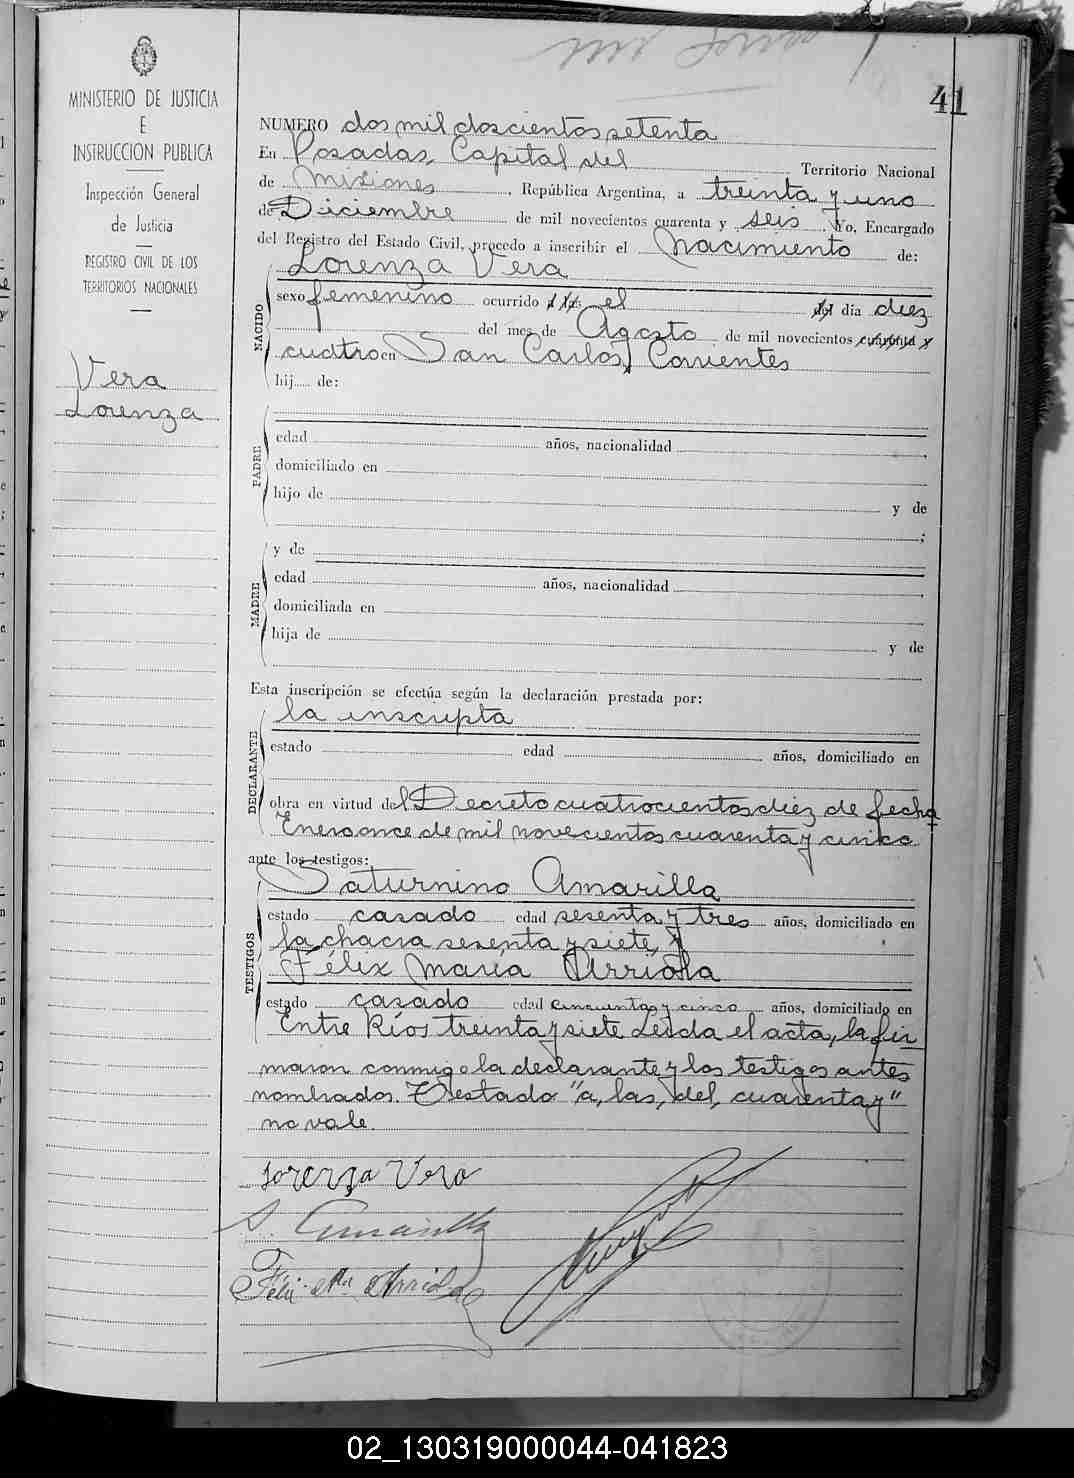 41
MINISTERIO DE JUSTICIA
E
INSTRUCCION PUBLICA
Inspección General
de Justicia
REGISTRO CIVIL DE LOS
TERRITORIOS NACIONALES
Vera
Lorenza
NUMERO dos mil doscientos setenta
En Posadas, Capital del Territorio Nacional
de Misiones, República Argentina, a treinta y uno
de Diciembre de mil novecientos cuarenta y seis. Yo, Encargado
del Registro del Estado Civil, procedo a inscribir el nacimiento de:
Lorenza Vera
NACIDO
sexo femenino ocurrido a las el del día diez
del mes de Agosto de mil novecientos cuarenta y
cuatro en San Carlos, Corrientes
hij de:
PADRE
edad años, nacionalidad
domiciliado en
hijo de y de
;
MADRE
y de
edad años, nacionalidad
domiciliada en
hija de y de
Esta inscripción se efectúa según la declaración prestada por:
DECLARANTE
la inscripta
estado edad años, domiciliado en
obra en virtud del Decreto cuatrocientos diez de fecha
Enero once de mil novecientos cuarenta y cinco
ante los testigos:
TESTIGOS
Saturnino Amarilla
estado casado edad sesenta y tres años, domiciliado en
la chacra sesenta y siete y
Félix María Arriola
estado casado edad cincuenta y cinco años, domiciliado en
Entre Ríos treinta y siete Leída el acta, la fir
maron conmigo la declarante y los testigos antes
nombrados. Testado "a, las, del, cuarenta y"
no vale.
Lorenza Vera
S. Amarilla
Félix Ma Arriola
02_130319000044-041823